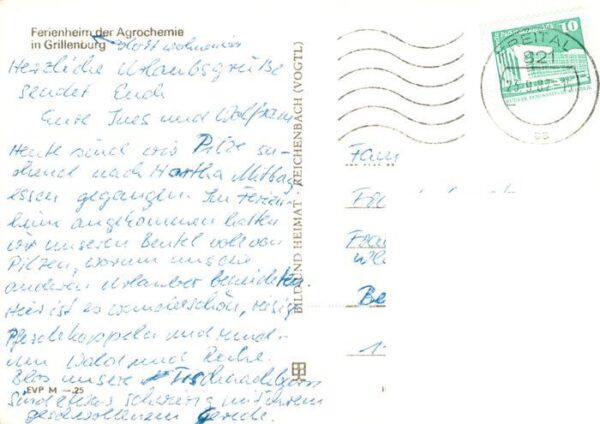 Ferienheim der Agrochemie
in Grillenburg
dort wohnen wir
Herzliche Urlaubsgrüße
sendet Euch
Eure Ines und Wolfram
Heute sind wir Pilze su-
chend nach Hartha Mittag
essen gegangen. Im Ferien-
heim angekommen hatten
wir unseren Beutel voll von
Pilzen, worum uns die
anderen Urlauber beneideten.
Hier ist es wunderschön, riesige
Pferdekoppeln und rund-
um Wald und Ruhe.
Blos unsere Tischnachbarn
sind etwas schwierig mit ihrem
geschwollenem Gerede.
EVP M —.25
BILD UND HEIMAT REICHENBACH (VOGTL)
FREITAL
821
10
Fam
Fa
Be
1